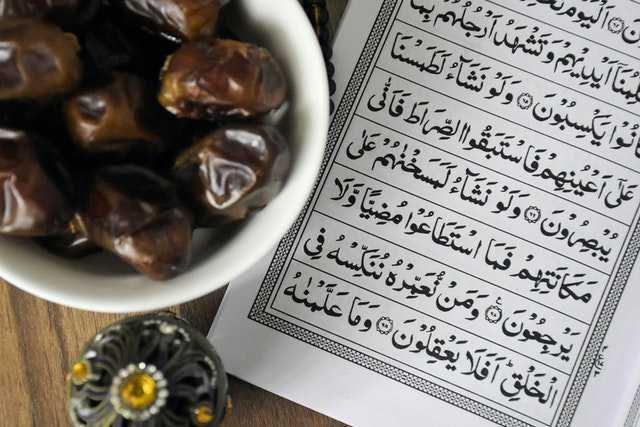 اَلْيَوْمَ
اَيْدِيْهِمْ وَتَشْهَدُ اَرْجُلُهُمْ بِمَا
يَكْسِبُوْنَ ﴿٦٥﴾ وَلَوْ نَشَآءُ لَطَمَسْنَا
عَلٰٓى اَعْيُنِهِمْ فَاسْتَبَقُوا الصِّرَاطَ فَاَنّٰى
يُبْصِرُوْنَ ﴿٦٦﴾ وَلَوْ نَشَآءُ لَمَسَخْنٰهُمْ عَلٰى
مَكَانَتِهِمْ فَمَا اسْتَطَاعُوْا مُضِيًّا وَّلَا
يَرْجِعُوْنَ ﴿٦٧﴾ وَمَنْ نُّعَمِّرْهُ نُنَكِّسْهُ فِى
الْخَلْقِ اَفَلَا يَعْقِلُوْنَ ﴿٦٨﴾ وَمَا عَلَّمْنٰهُ